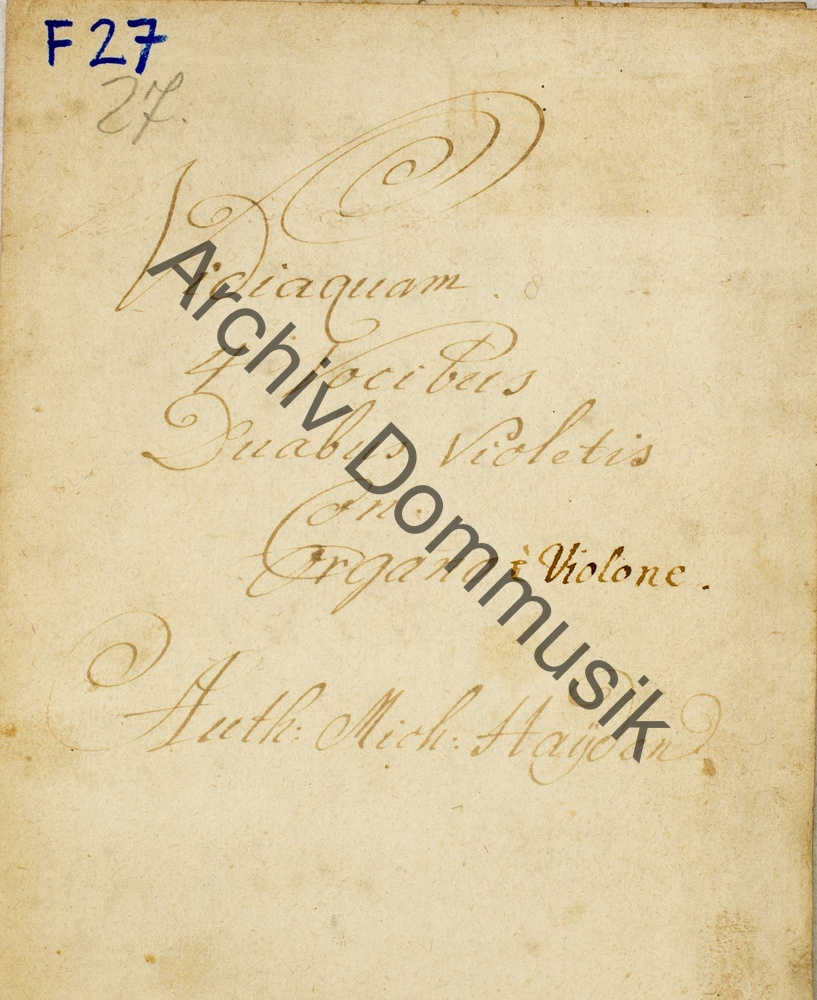 F 27
27.
Vidiaquam.
4 Vocibus
Duabus Violetis
Con.
Organo è Violone.
Auth: Mich: Haÿden
Archiv Dommusik